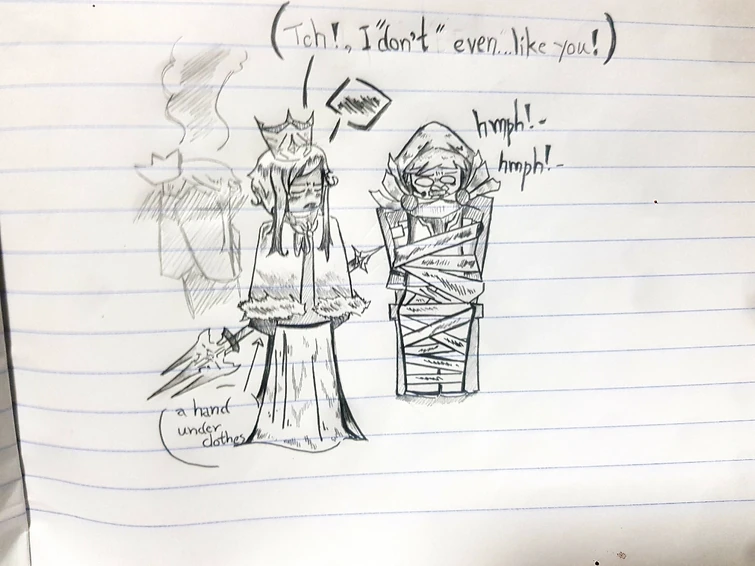 (Tch!, I "don't" even...like you!)
hmph!-
hmph!-
a hand
under
clothes